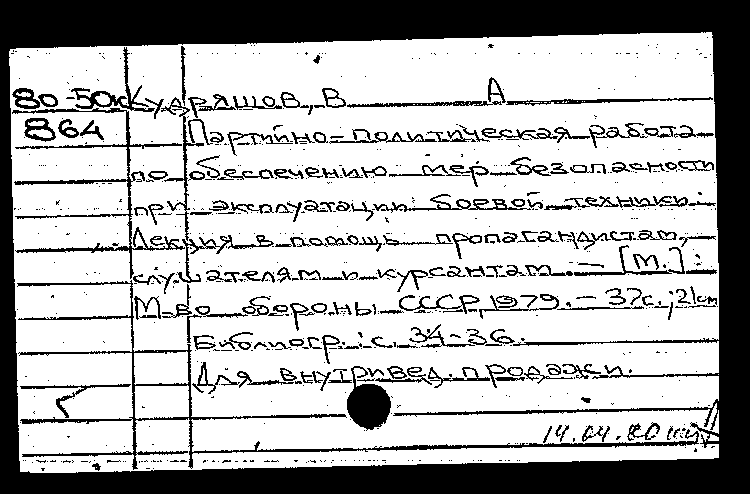 80-50к Кудряшов, В А
864 Партийно-политическая работа
по обеспечению мер безопасности
при эксплуатации боевой техники:
Лекция в помощь пропагандистам,
слушателям и курсантам. — [М.]:
М-во обороны СССР, 1979. — 37с.; 21см
Библиогр.: с. 34-36.
Для внутривед. продажи.
14.04.80